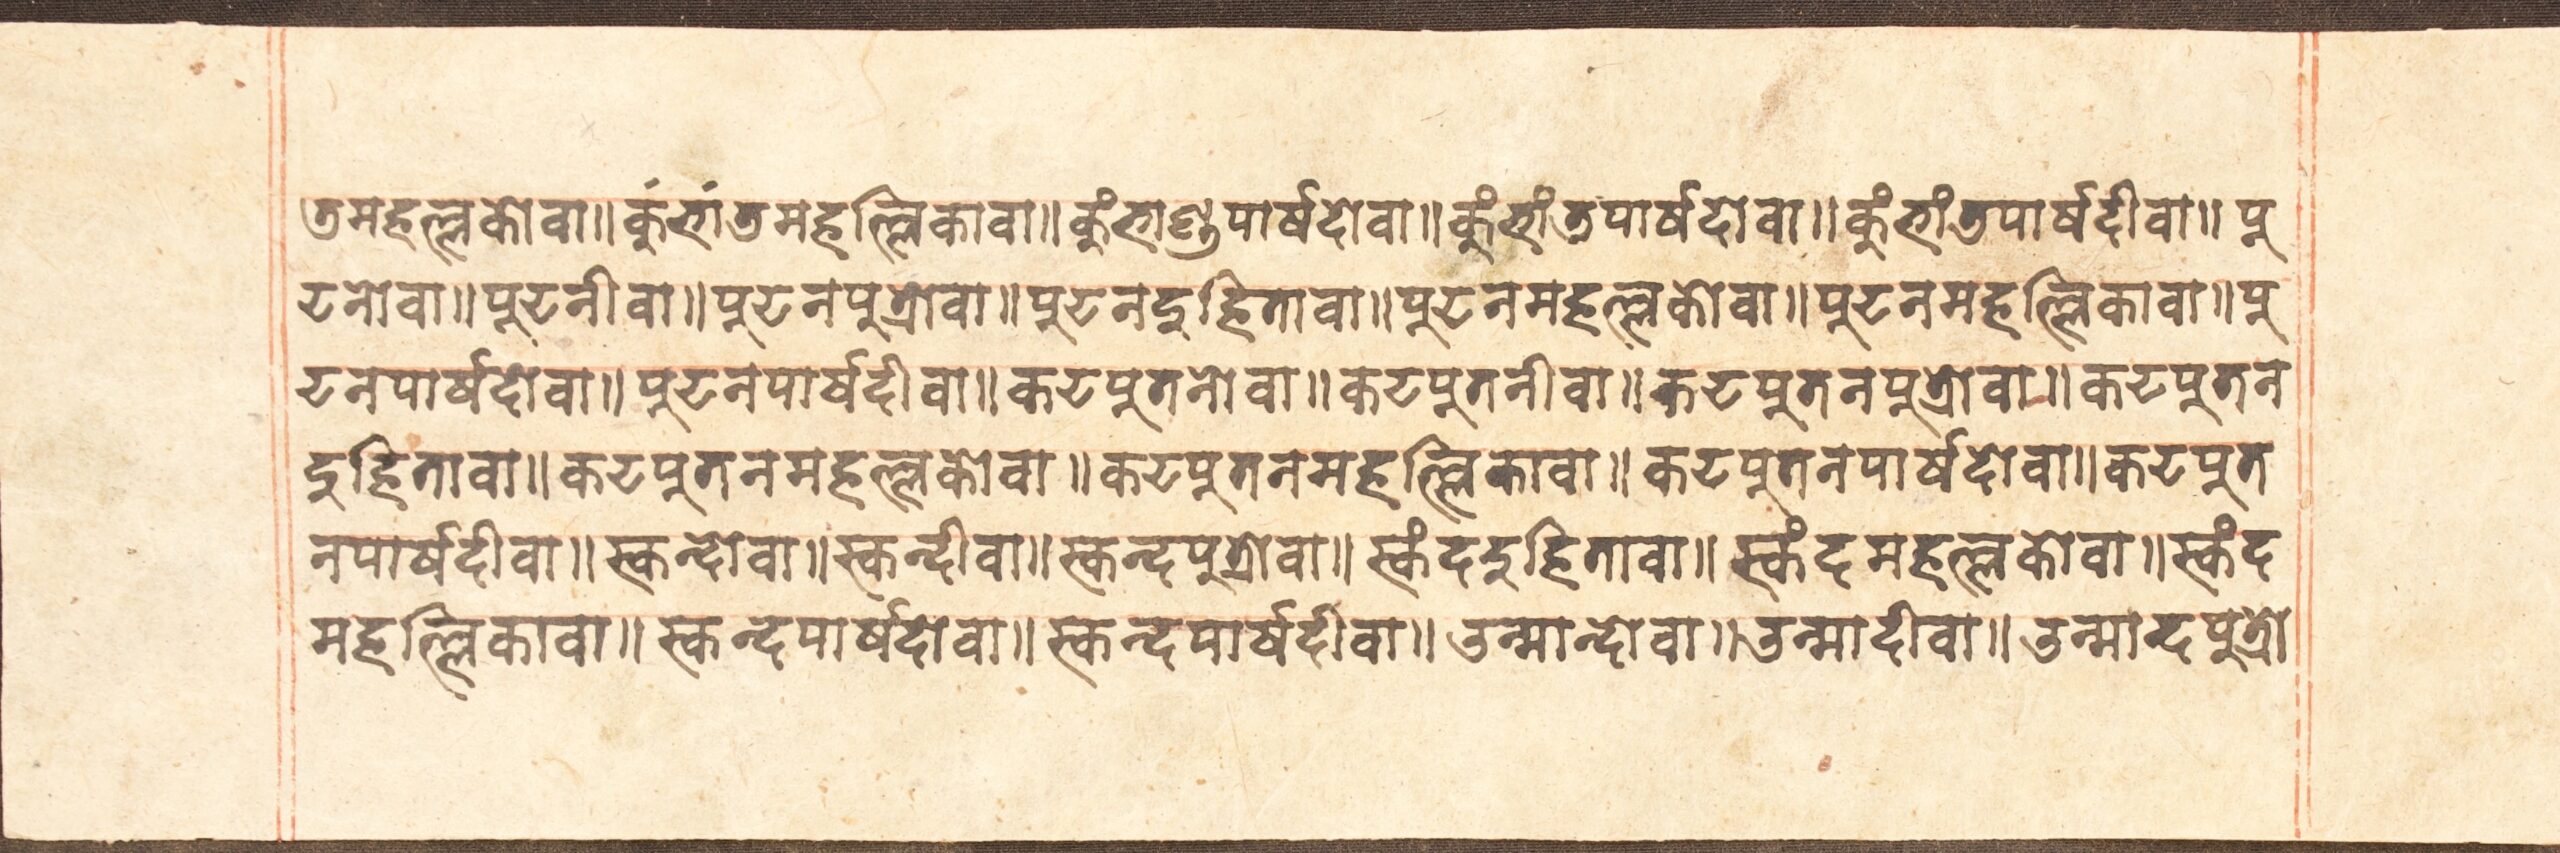 डमहल्लकोवा॥ कुंभांडमहल्लिकावा॥ कुंभाण्डपार्षदोवा॥ कुंभांडपार्षदोवा॥ कुंभांडपार्षदीवा॥ पु
टनोवा॥ पुटनीवा॥ पुटनपुत्रोवा॥ पुटनदुहितावा॥ पुटनमहल्लकोवा॥ पुटनमहल्लिकावा॥ पु
टनपार्षदोवा॥ पुटनपार्षदीवा॥ कटपुतनोवा॥ कटपुतनीवा॥ कटपुतनपुत्रोवा॥ कटपुतन
दुहितावा॥ कटपुतनमहल्लकोवा॥ कटपुतनमहल्लिकावा॥ कटपुतनपार्षदोवा॥ कटपुत
नपार्षदीवा॥ स्कन्दोवा॥ स्कन्दीवा॥ स्कन्दपुत्रोवा॥ स्कंददुहितावा॥ स्कंदमहल्लकोवा॥ स्कंद
महल्लिकावा॥ स्कन्दपार्षदोवा॥ स्कन्दपार्षदीवा॥ उन्मान्दोवा॥ उन्मादीवा॥ उन्मान्दपुत्रो